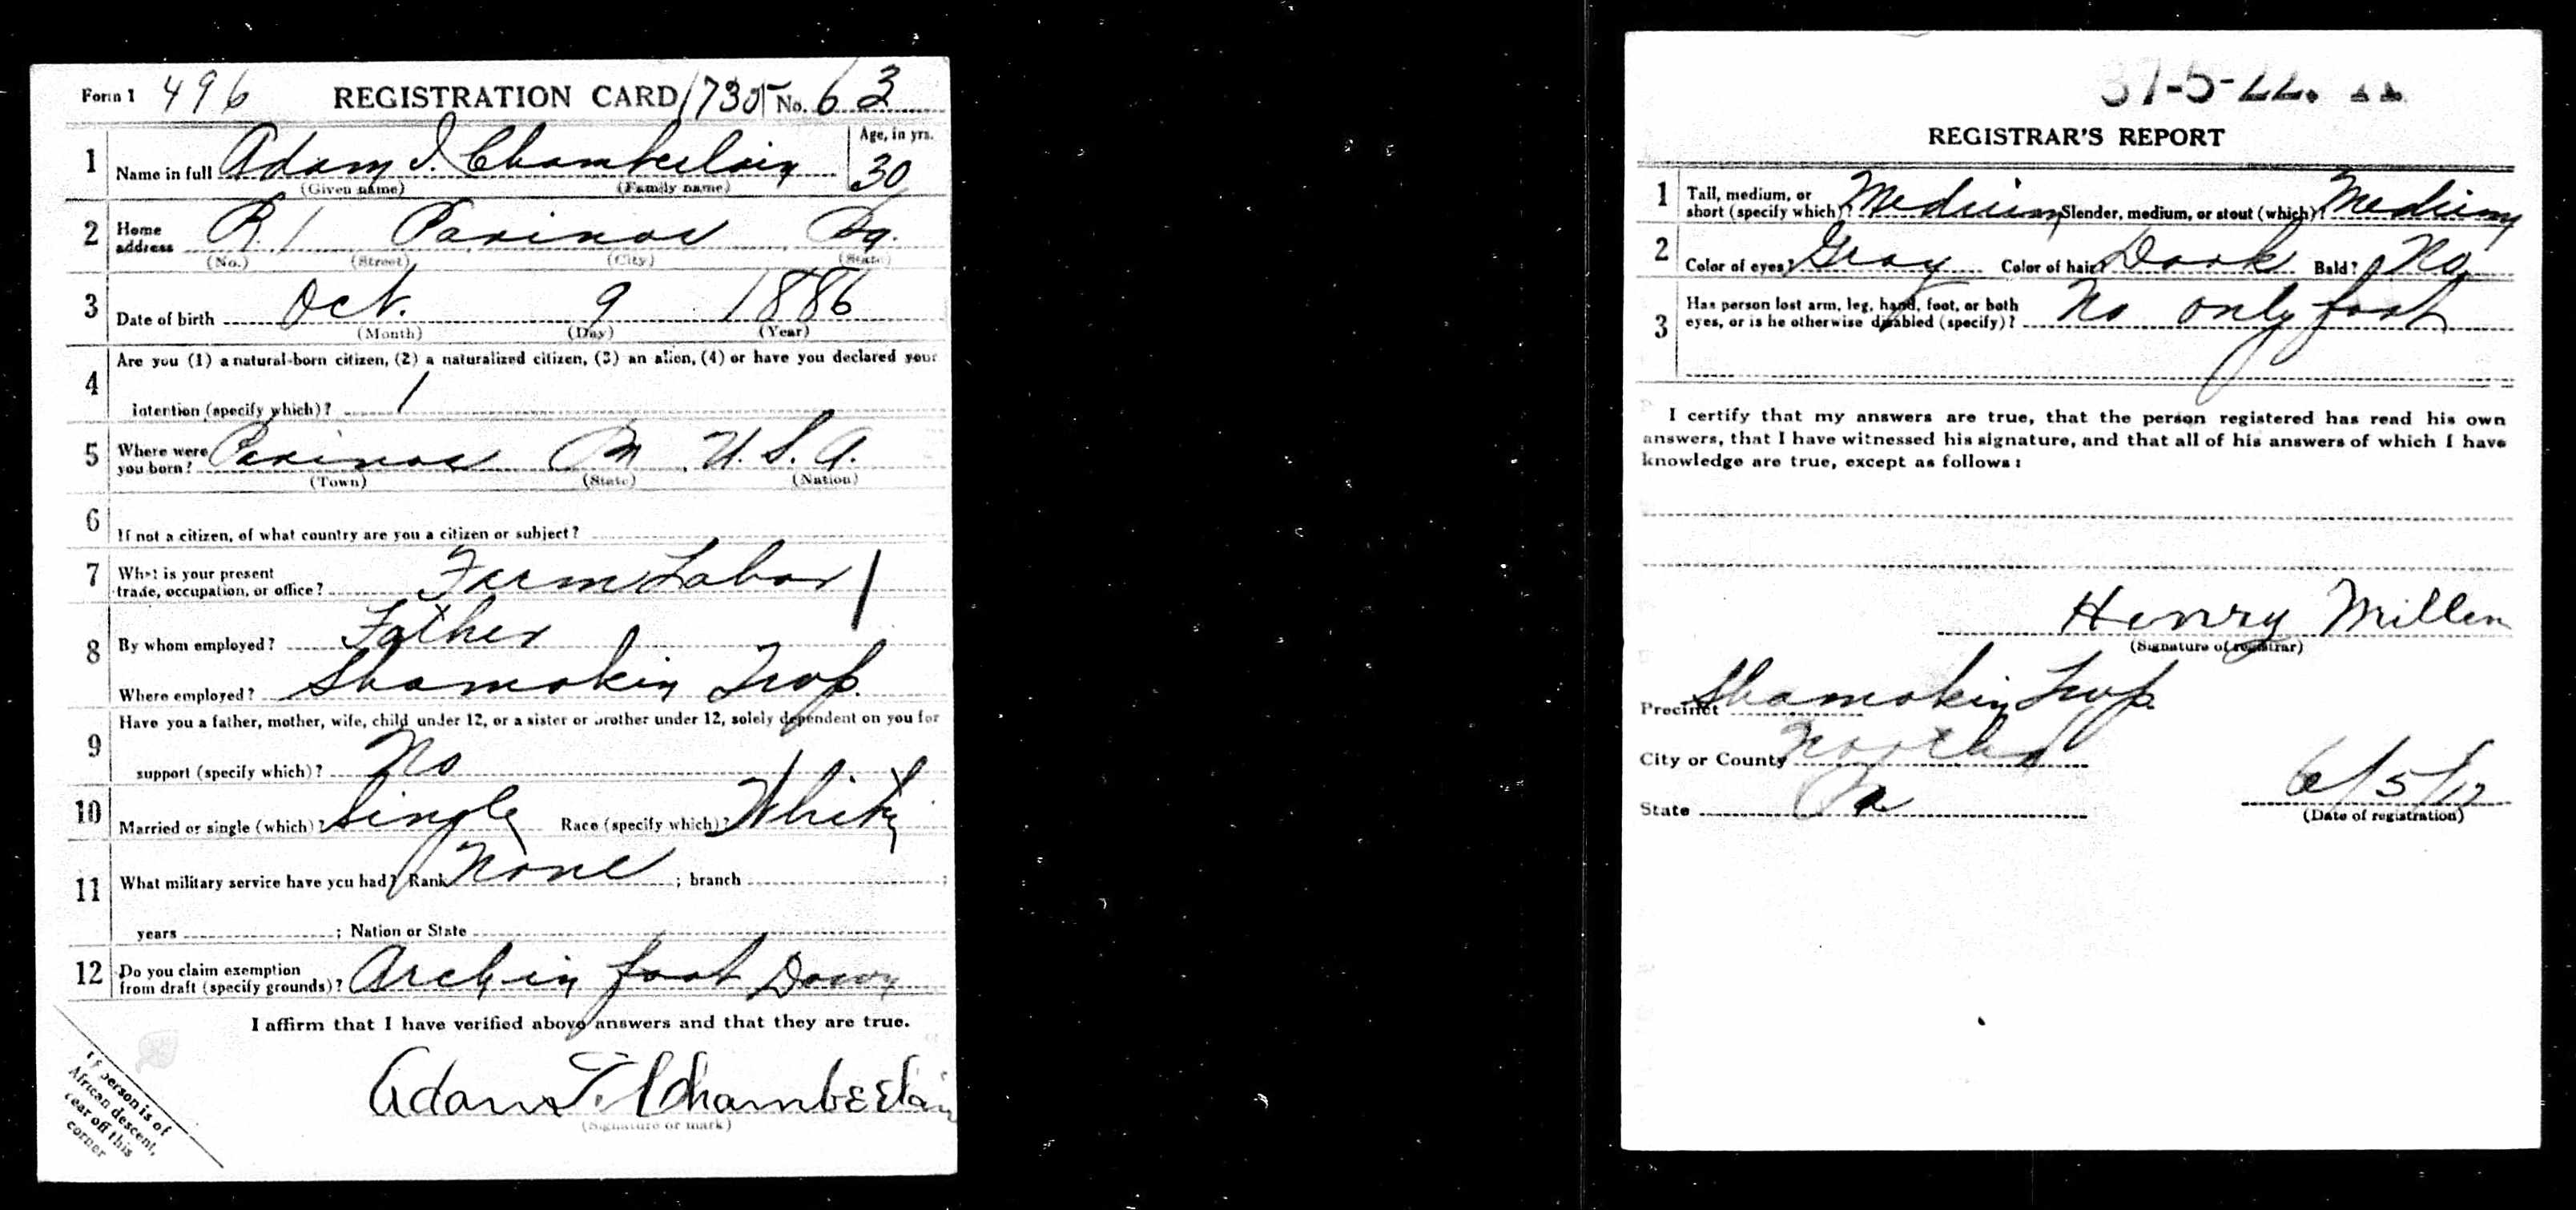 Form 1 496 REGISTRATION CARD 1735 No. 63
1 Name in full Adam I. Chamberlain Age, in yrs. 30
(Given name) (Family name)
2 Home address R. 1 Paxinos Pa.
(No.) (Street) (City) (State)
3 Date of birth Oct. 9 1886
(Month) (Day) (Year)
4 Are you (1) a natural-born citizen, (2) a naturalized citizen, (3) an alien, (4) or have you declared your
intention (specify which)? 1
5 Where were you born? Paxinos Pa. U. S. A.
(Town) (State) (Nation)
6 If not a citizen, of what country are you a citizen or subject?
7 What is your present
trade, occupation, or office? Farm Labor
8 By whom employed? Father
Where employed? Shamokin Twp.
9 Have you a father, mother, wife, child under 12, or a sister or brother under 12, solely dependent on you for
support (specify which)? No
10 Married or single (which)? Single Race (specify which)? White
11 What military service have you had? Rank None ; branch ;
years ; Nation or State
12 Do you claim exemption
from draft (specify grounds)? Arch in foot Down
I affirm that I have verified above answers and that they are true.
Adam I. Chamberlain
(Signature or mark)
If person is of
African descent,
tear off this
corner
37-5-22.
REGISTRAR'S REPORT
1 Tall, medium, or
short (specify which)? Medium Slender, medium, or stout (which)? Medium
2 Color of eyes? Gray Color of hair? Dark Bald? No
3 Has person lost arm, leg, hand, foot, or both
eyes, or is he otherwise disabled (specify)? No only foot
I certify that my answers are true, that the person registered has read his own
answers, that I have witnessed his signature, and that all of his answers of which I have
knowledge are true, except as follows:
Henry Miller
(Signature of registrar)
Precinct Shamokin Twp.
City or County North'd
State Pa 6/5/17
(Date of registration)